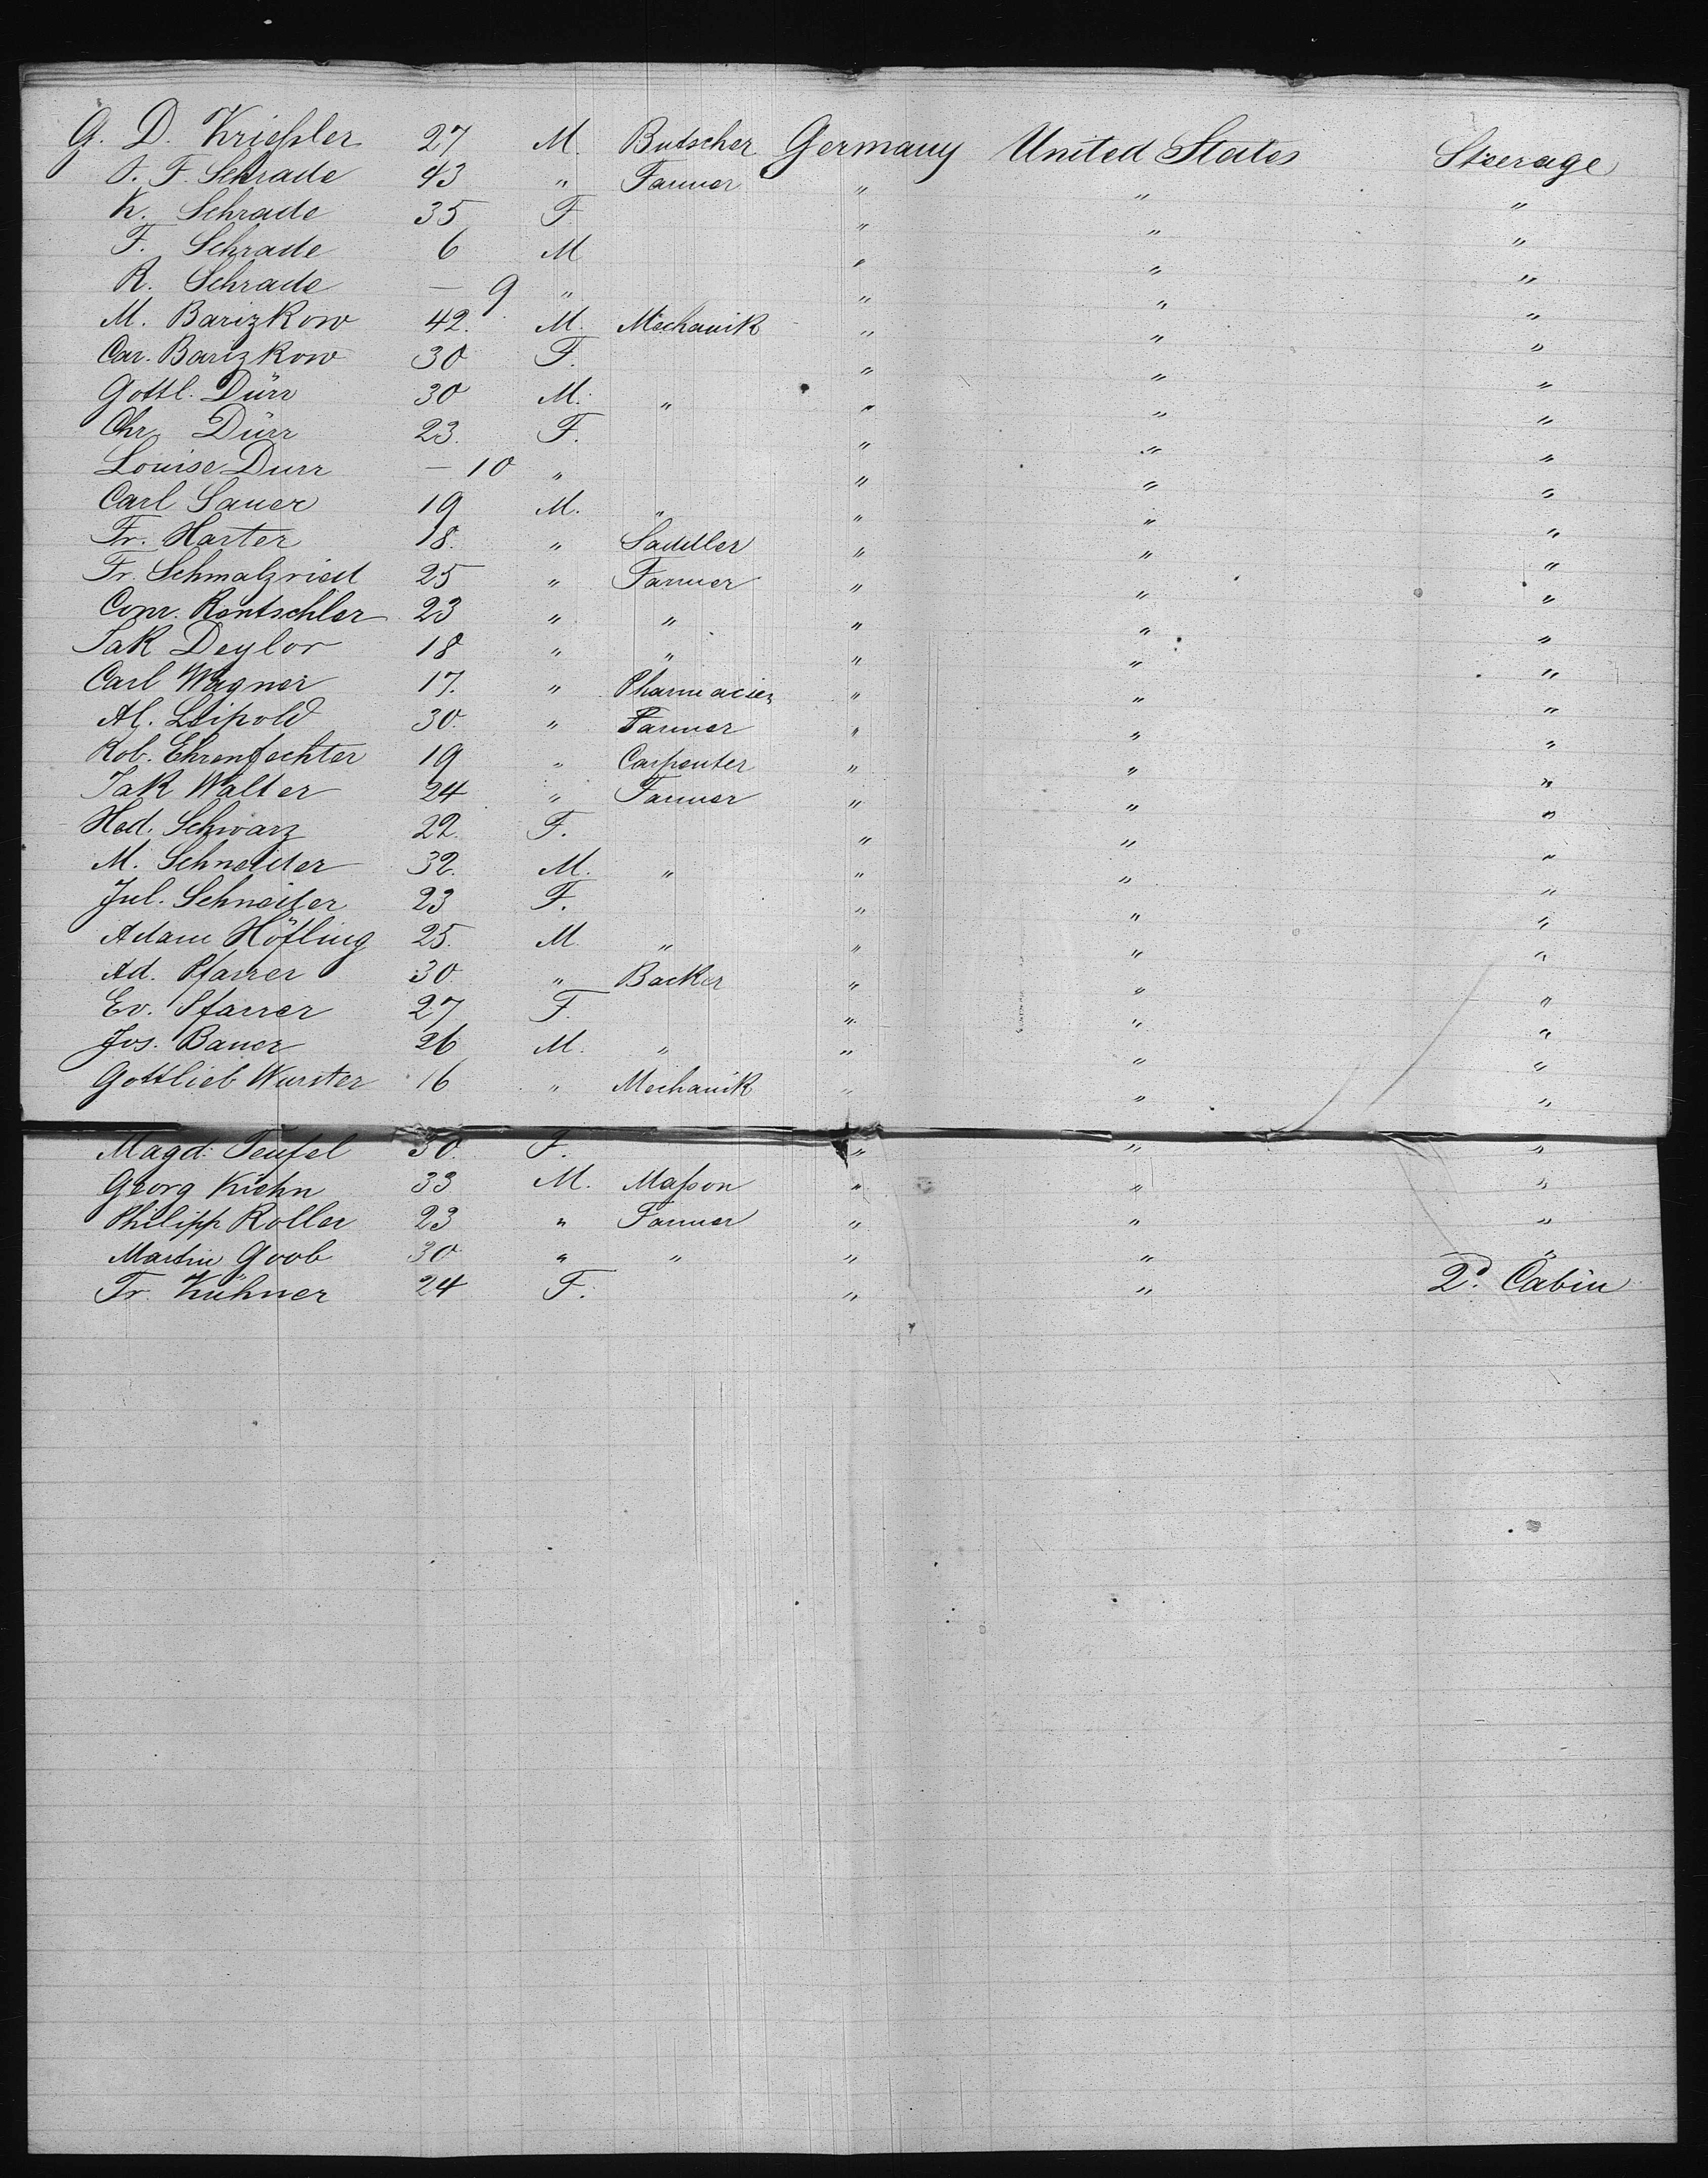 G. D. Krießler 27 M. Butscher Germany United States Steerage
J. F. Schrade 43 " Farmer " " "
K. Schrade 35 F. " " "
F. Schrade 6 M " " "
R. Schrade — 9 " " " "
M. Barizkow 42. M. Mechanik " " "
Car. Barizkow 30 F. " " "
Gottl. Dürr 30 M. " " " "
Chr. Dürr 23. F. " " "
Louise Durr — 10 " " " "
Carl Sauer 19 M. " " " "
Fr. Harter 18. " Saddler " " "
Fr. Schmalzried 25 " Farmer " " "
Conr. Rentschler 23 " " " " "
Jak Deylor 18 " " " " "
Carl Wagner 17. " Pharmacien " " "
Al. Leipold 30. " Farmer " " "
Rob. Ehrenfechter 19 " Carpenter " " "
Jak Walter 24 " Farmer " " "
Hed. Schwarz 22. F. " " "
M. Schneider 32. M. " " " "
Jul. Schneider 23 F. " " "
Adam Höfling 25. M. " " " "
Ad. Pfarrer 30. " Backer " " "
Ev. Pfarrer 27 F. " " "
Jos. Bauer 26 M. " " " "
Gottlieb Wurster 16 " Mechanik " " "
Magd: Teufel 30. F. " " "
Georg Kiehn 33 M. Maßon " " "
Philipp Roller 23 " Farmer " " "
Martin Goob 30 " " " " "
Fr. Kühner 24 F. " " 2d. Cabin